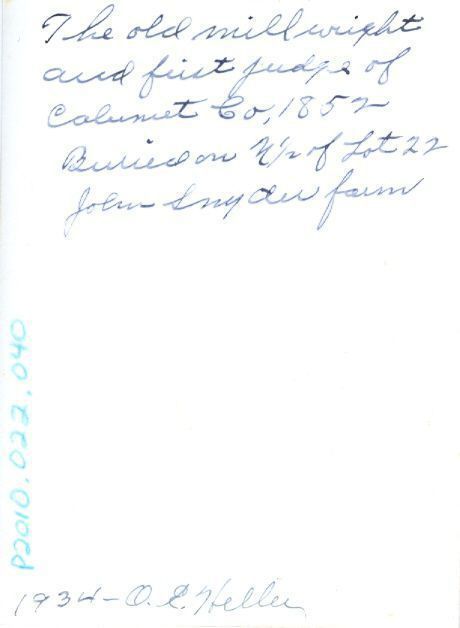 The old millwright
and first judge of
Calumet Co, 1852
Buried on N/2 of Lot 22
John Snyder farm
P2010.022.040
1934 - O. E. Heller